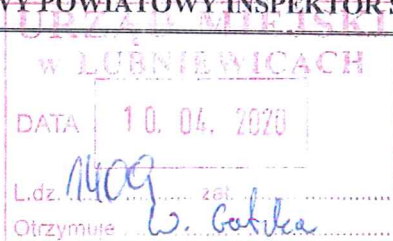 WY POWIATOWY INSPEKTOR S
URZĄD MIEJSKI
w LUBNIEWICACH
DATA 10. 04. 2020
L.dz. 1409 zał.
Otrzymuje W.